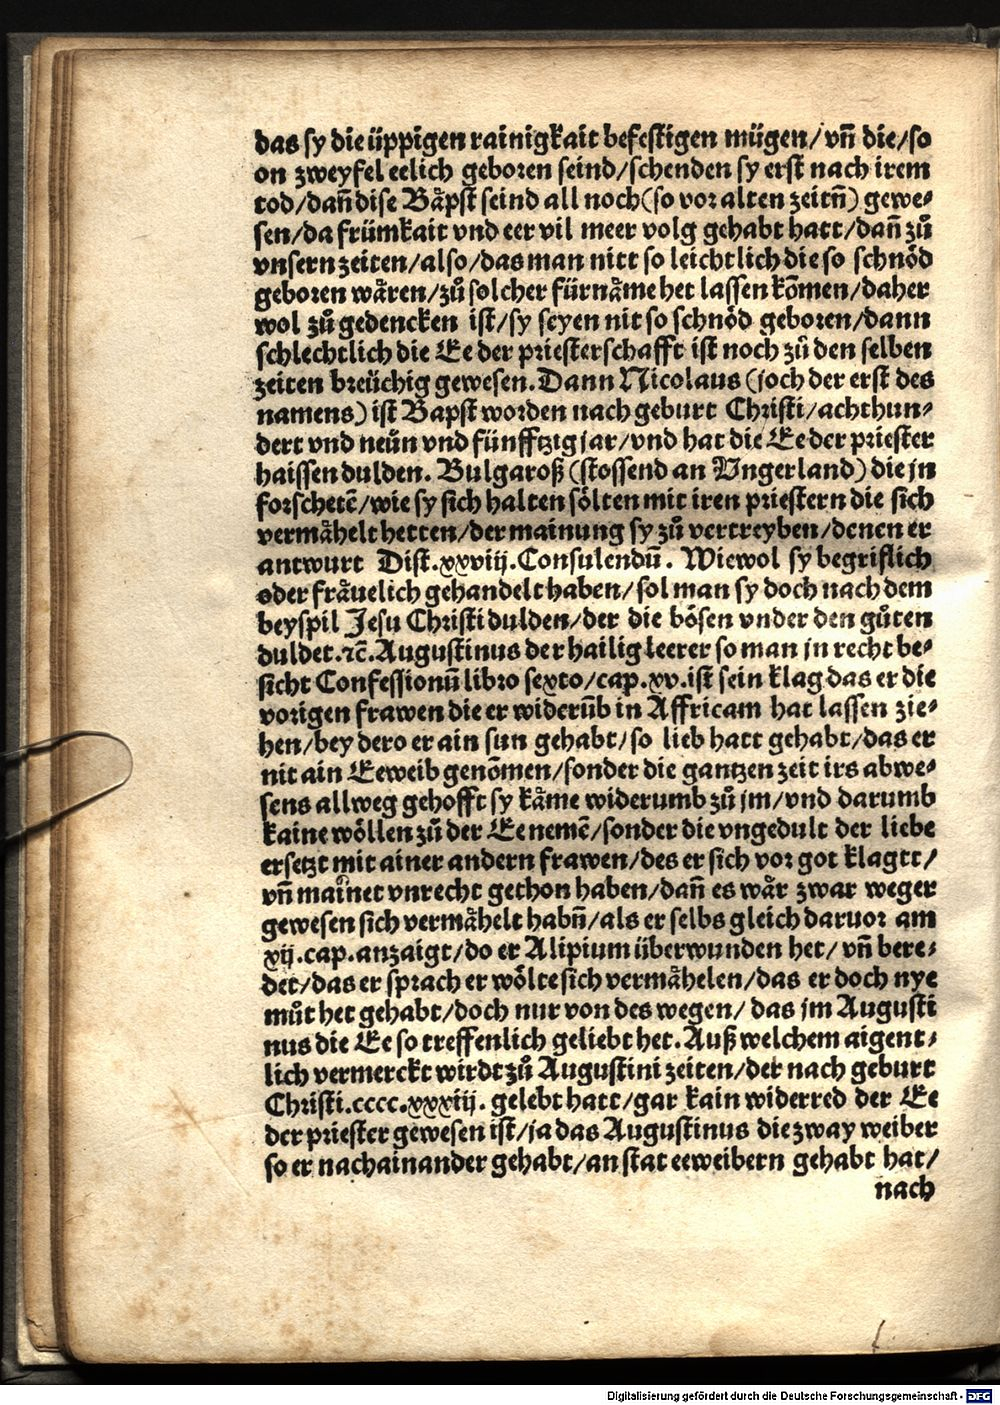 das sy die üppigen rainigkait befestigen mügen/ vñ die/so
on zweyfel eelich geboren seind/schenden sy erst nach irem
tod/dañ dise Bäpst seind all noch (so vor alten zeitñ) gewe⸗
sen/da frümkait vnd eer vil meer volg gehabt hatt/dañ zů
vnsern zeiten/also/das man nitt so leichtlich die so schnöd
geboren wären/zů solcher fürnäme het lassen kõmen/daher
wol zů gedencken ist/sy seyen nit so schnöd geboren/dann
schlechtlich die Ee der priesterschafft ist noch zů den selben
zeiten breüchig gewesen. Dann Nicolaus (joch der erst des
namens) ist Bapst worden nach geburt Christi/achthun⸗
dert vnd neün vnd fünfftzig jar/vnd hat die Ee der priester
haissen dulden. Bulgaroß (stossend an Vngerland) die jn
forschetẽ/wie sy sich halten sölten mit iren priestern die sich
vermähelt hetten/der mainung sy zů vertreyben/denen er
antwurt Dist.xxviij.Consulendũ. Wiewol sy begriflich
oder fräuelich gehandelt haben/sol man sy doch nach dem
beyspil Jesu Christi dulden/der die bösen vnder den gůten
duldet.⁊c̃.Augustinus der hailig leerer so man jn recht be⸗
sicht Confessionũ libro sexto/cap.xv.ist sein klag das er die
vorigen frawen die er widerũb in Affricam hat lassen zie⸗
hen/bey dero er ain sun gehabt/so lieb hatt gehabt/das er
nit ain Eeweib genõmen/sonder die gantzen zeit irs abwe⸗
sens allweg gehofft sy käme widerumb zů jm/vnd darumb
kaine wöllen zů der Ee nemẽ/sonder die vngedult der liebe
ersetzt mit ainer andern frawen/des er sich vor got klagtt/
vñ mainet vnrecht gethon haben/dañ es wär zwar weger
gewesen sich vermähelt habñ/als er selbs gleich daruor am
xij.cap.anzaigt/do er Alipium überwunden het/ vñ bere⸗
det/das er sprach er wölte sich vermähelen/das er doch nye
můt het gehabt/doch nur von des wegen/ das jm Augusti
nus die Ee so treffenlich geliebt het. Auß welchem aigent⸗
lich vermerckt wirdt zů Augustini zeiten/der nach geburt
Christi.cccc.xxxiij. gelebt hatt/gar kain widerred der Ee
der priester gewesen ist/ja das Augustinus die zway weiber
so er nachainander gehabt/an stat eeweibern gehabt hat/
nach
Digitalisierung gefördert durch die Deutsche Forschungsgemeinschaft - DFG